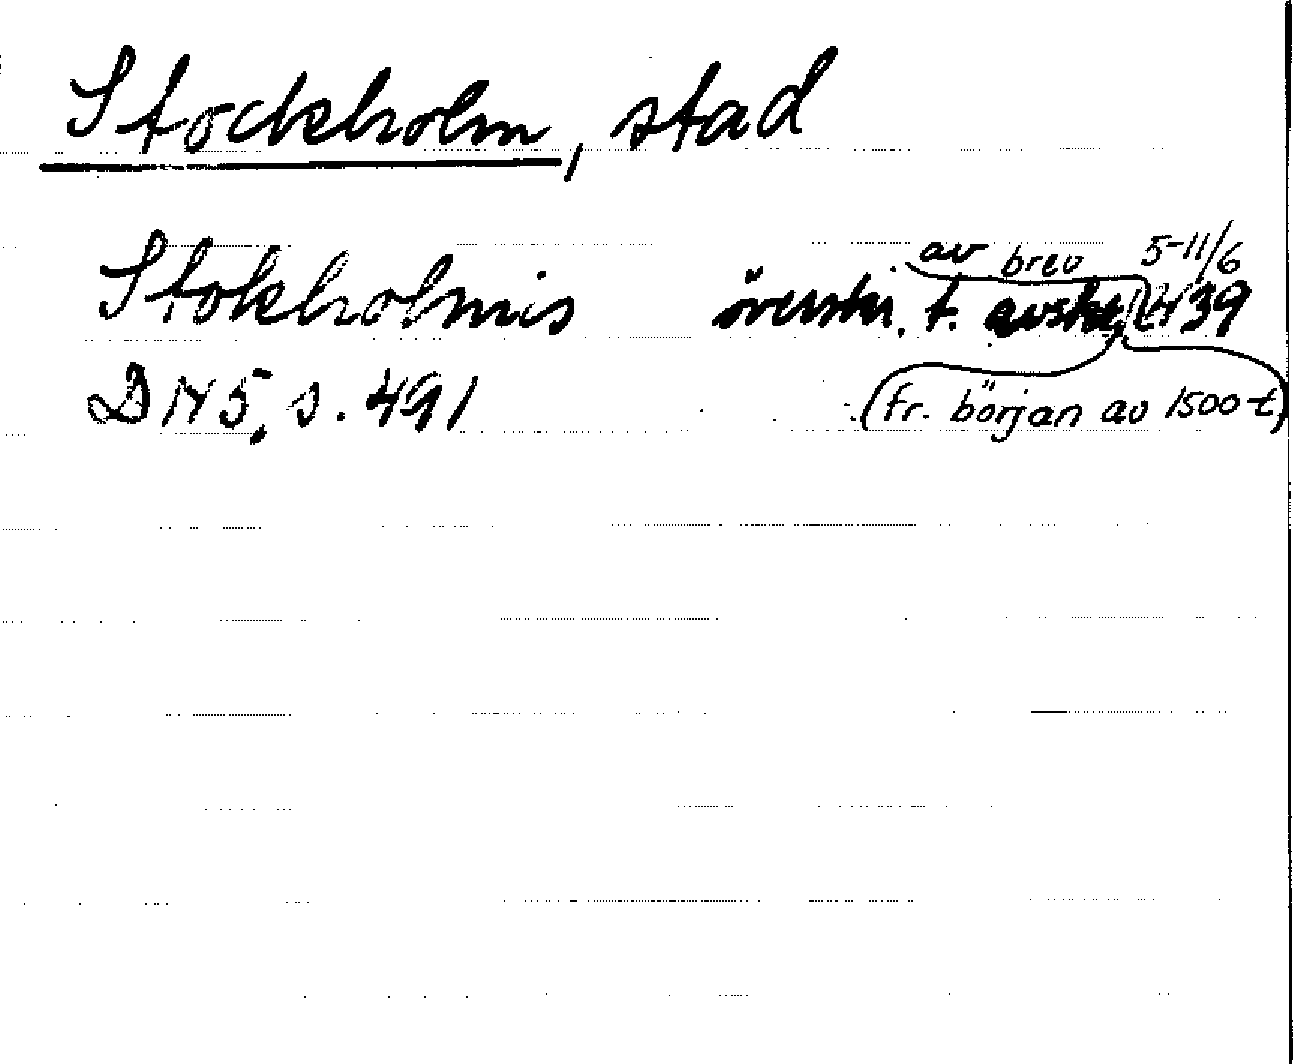 Stockholm, stad
av brev 5-11/6
Stokholmis överskr. t. avskr. 39
DN 5, s. 491 (fr. början av 1500-t)